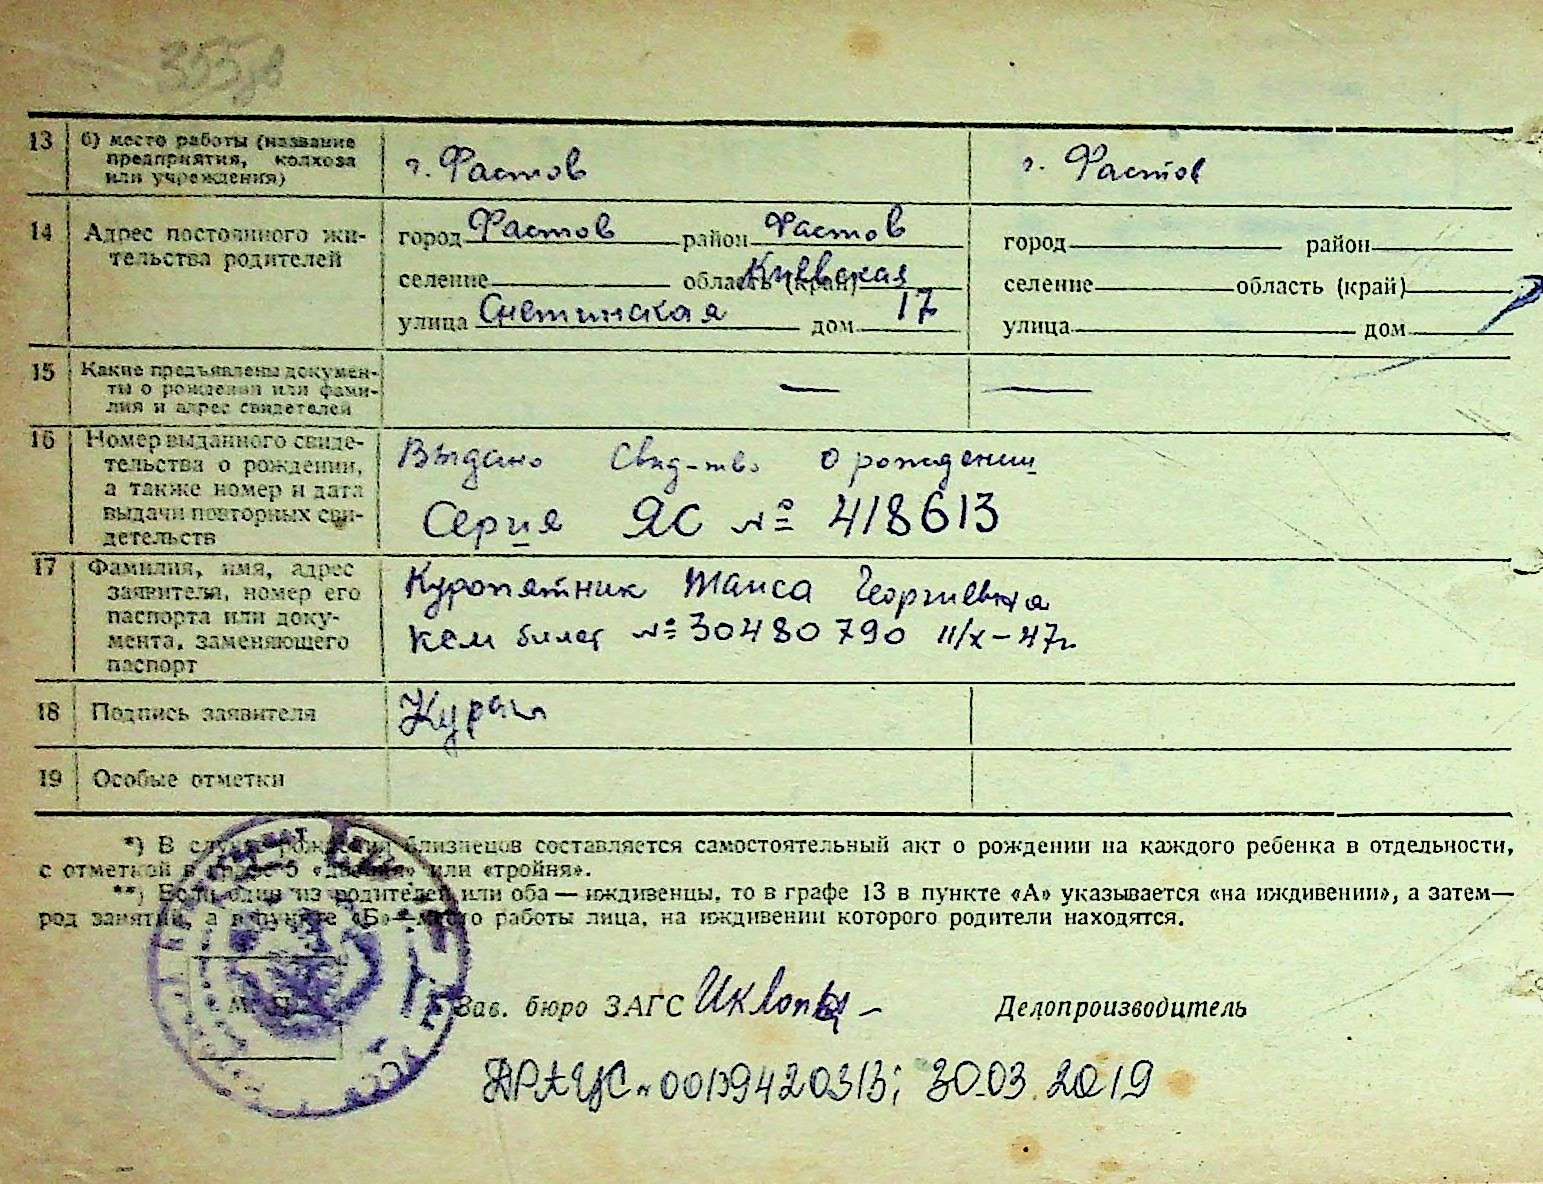 355
13 б) место работы (название предприятия, колхоза или учреждения) г. Фастов г. Фастов
14 Адрес постоянного жительства родителей
город Фастов район Фастов город район
селение область (край) Киевская селение область (край)
улица Снетинская дом 17 улица дом
15 Какие предъявлены документы о рождении или фамилия и адрес свидетелей — —
16 Номер выданного свидетельства о рождении, а также номер и дата выдачи повторных свидетельств
Выдано свид-тво о рождении
Серия ЯС № 418613
17 Фамилия, имя, адрес заявителя, номер его паспорта или документа, заменяющего паспорт
Куропятник Таиса Георгиевна
билет № 30480790 11/X-47г.
18 Подпись заявителя
19 Особые отметки
*) В случае рождения близнецов составляется самостоятельный акт о рождении на каждого ребенка в отдельности,
с отметкой в графе 5 «двойня» или «тройня».
**) Если один из родителей или оба — иждивенцы, то в графе 13 в пункте «А» указывается «на иждивении», а затем—
род занятий, а в пункте «Б»—место работы лица, на иждивении которого родители находятся.
Зав. бюро ЗАГС Делопроизводитель
ДРАЦС № 00139420313; 30.03.2019